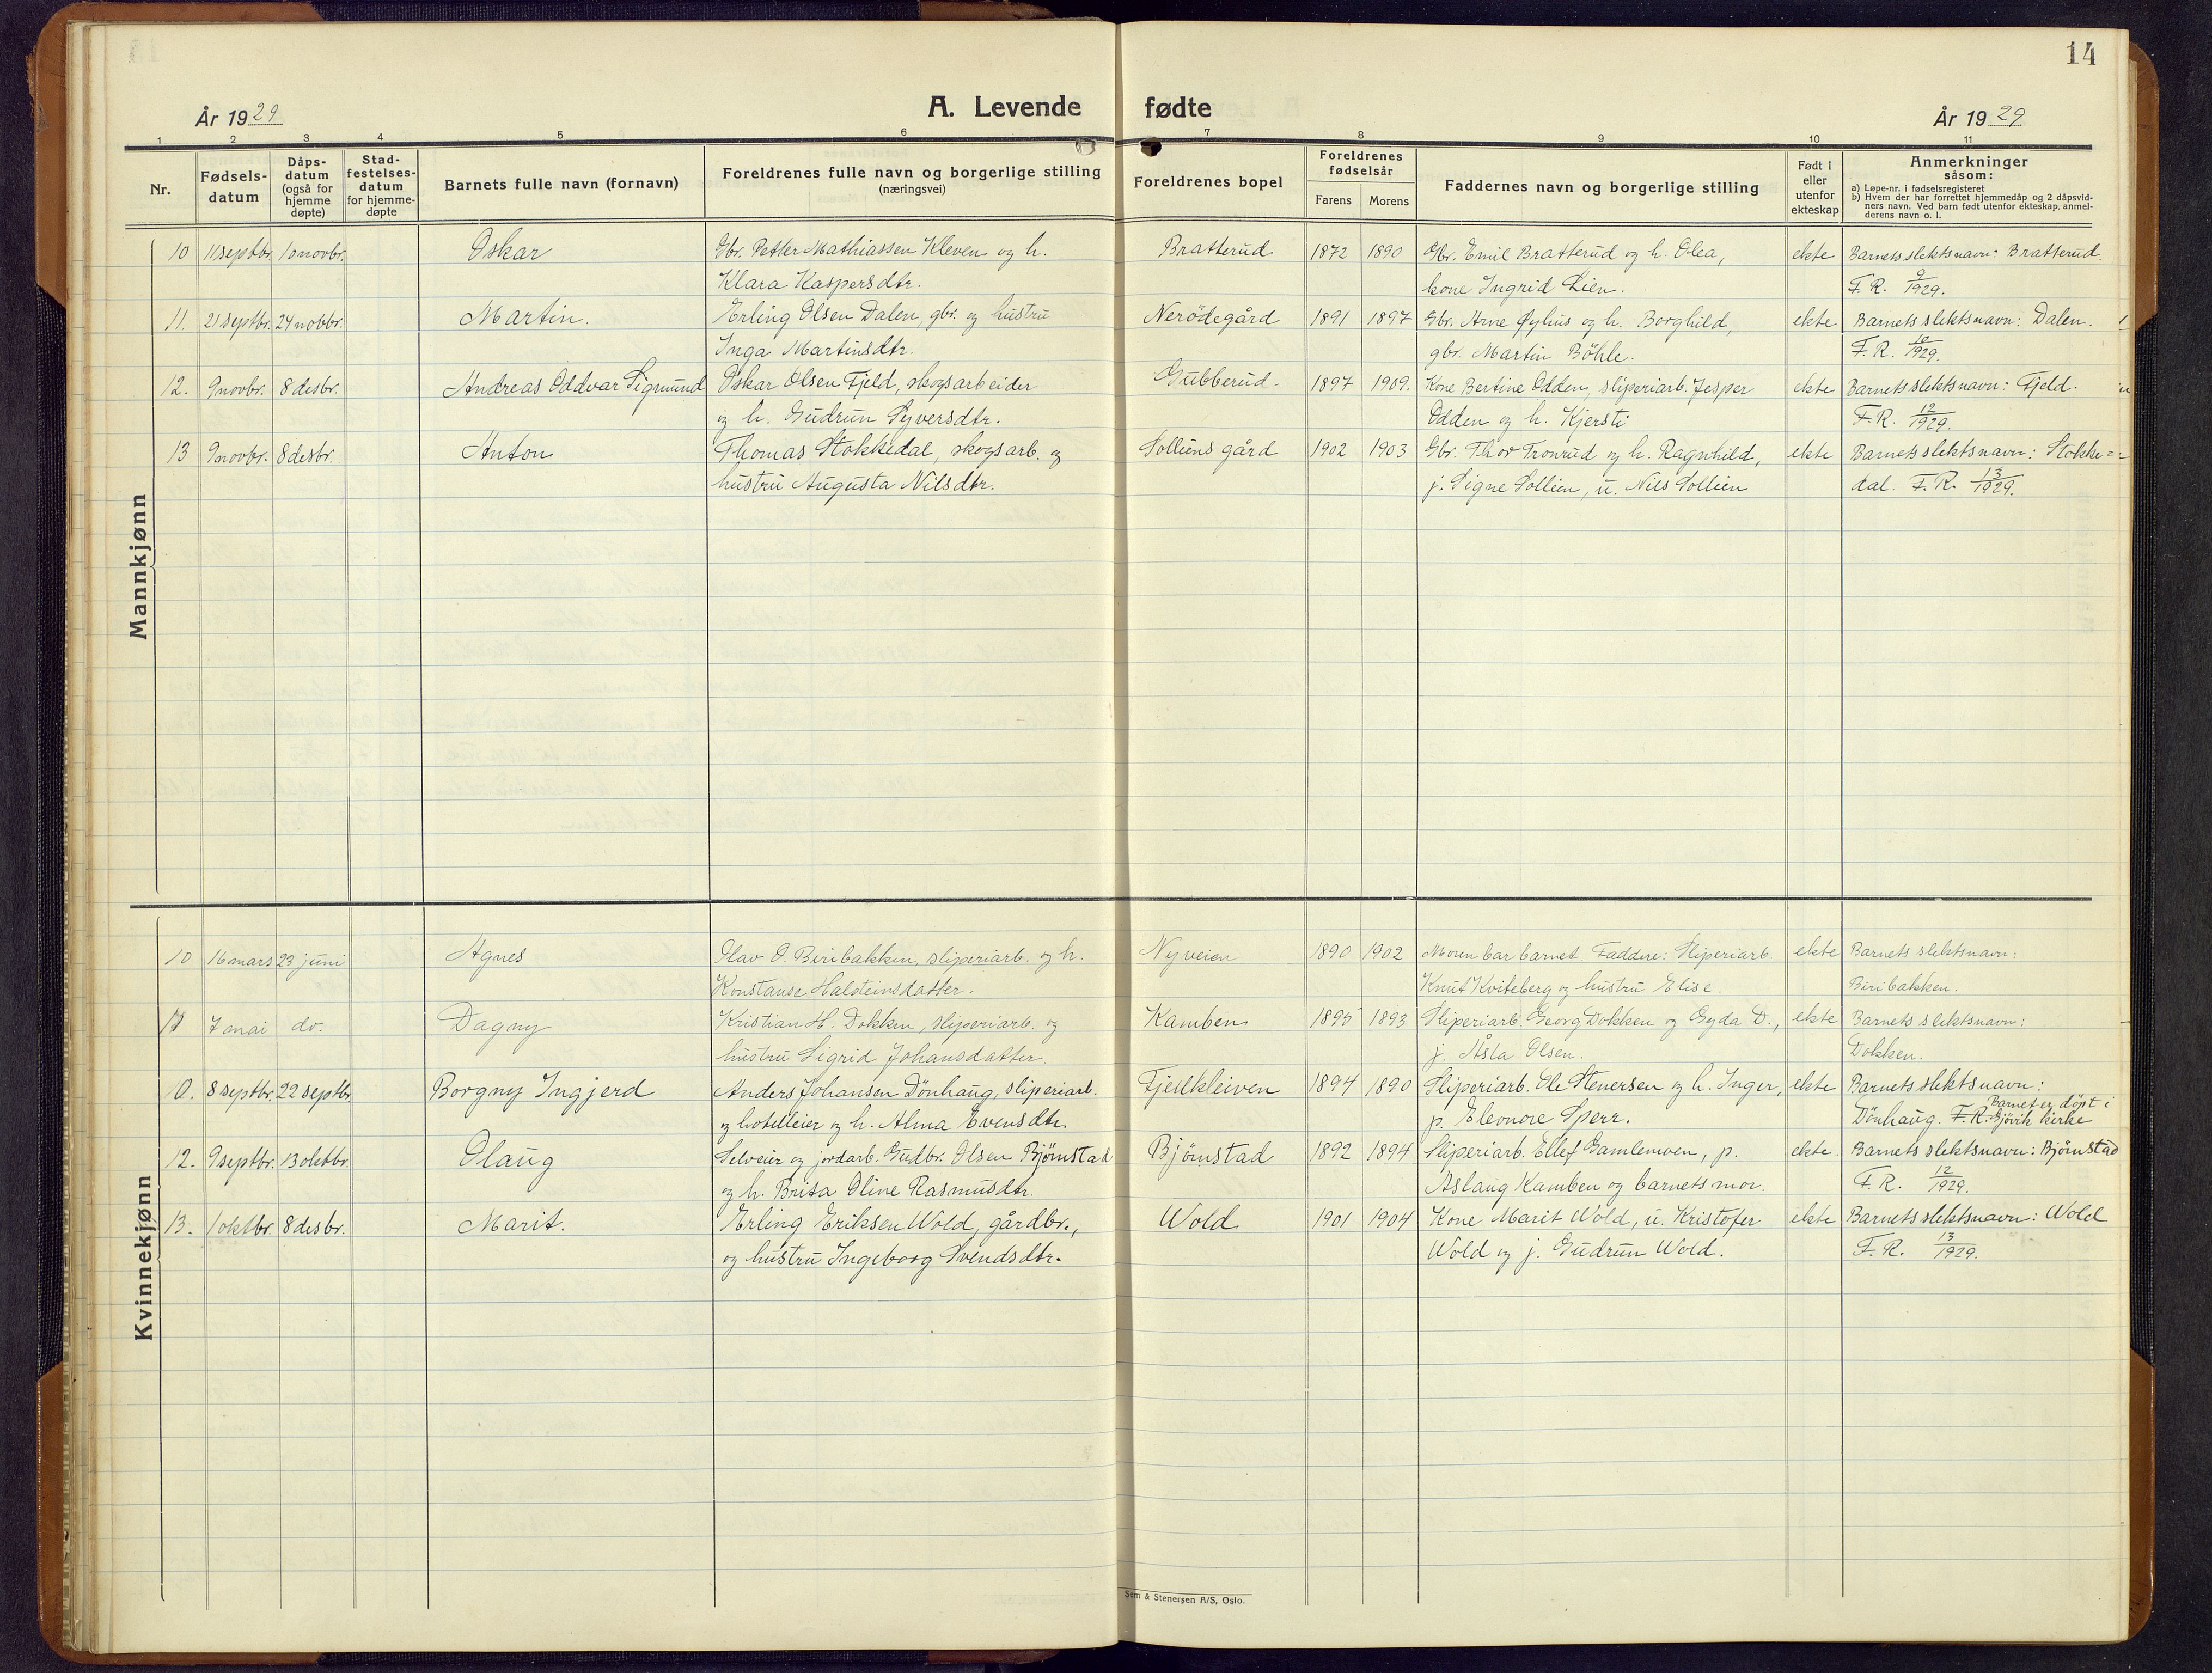 14
År 1929 A. Levende fødte År 1929
1 2 3 4 5 6 7 8 9 10 11
Nr. Fødselsdatum Dåpsdatum (også for hjemme døpte) Stadfestelsesdatum for hjemmedøpte Barnets fulle navn (fornavn) Foreldrenes fulle navn og borgerlige stilling (næringsvei) Foreldrenes bopel Foreldrenes fødselsår Farens Morens Faddernes navn og borgerlige stilling Født i eller utenfor ekteskap Anmerkninger såsom: a) Løpe-nr. i fødselsregisteret b) Hvem der har forrettet hjemmedåp og 2 dåpsvidners navn. Ved barn født utenfor ekteskap, anmelderens navn o. l.
Mannkjønn
10 11 septbr. 10 novbr. Oskar Gbr. Petter Mathiassen Kleven og h. Bratterud 1872 1890 Gbr. Emil Bratterud og h. Olea, ekte Barnets slektsnavn: Bratterud.
Klara Kaspersdtr. kone Ingrid Lien. F. R. 9/1929.
11. 21 septbr. 24 novbr. Martin. Erling Olsen Dalen, gbr. og hustru Nerödegård 1891 1897 Gbr. Arne Øyhus og h. Borghild, ekte Barnets slektsnavn: Dalen.
Inga Martinsdtr. gbr. Martin Böhle. F. R. 10/1929.
12. 9 novbr. 8 desbr. Andreas Oddvar Sigmund Oskar Olsen Fjeld, skogsarbeider Gubberud. 1897 1909. Kone Bertine Odden, sliperiarb. Jesper ekte Barnets slektsnavn: Fjeld.
og h. Gudrun Syversdtr. Odden og h. Kjersti F. R. 12/1929.
13 9 novbr. 8 desbr. Anton Thomas Stokkedal, skogsarb. og Solliens gård 1902 1903 Gbr. Thor Tronrud og h. Ragnhild, ekte Barnets slektsnavn: Stokke=
hustru Augusta Nilsdtr. j. Signe Sollien, u. Nils Sollien dal. F. R. 13/1929.
Kvinnekjønn
10 16 mars 23 juni Agnes Olav O. Biribakken, sliperiarb. og h. Nyveien 1890 1902 Moren bar barnet. Faddere: Sliperiarb. ekte Barnets slektsnavn:
Konstanse Halsteinsdatter. Knut Kviteberg og hustru Elise. Biribakken.
7 mai do. Dagny Kristian H. Dokken, sliperiarb. og Kamben 1895 1893 Sliperiarb. Georg Dokken og Gyda D., ekte Barnets slektsnavn:
hustru Sigrid Johansdatter. j. Åsta Olsen. Dokken.
10. 8 septbr. 22 septbr. Borgny Ingjerd Anders Johansen Dönhaug, sliperiarb. Fjellkleiven 1894 1890 Sliperiarb. Ole Stenersen og h. Inger, ekte Barnets slektsnavn:
og hotelleier og h. Alma Evensdtr. p. Eleonore Sperr. Dönhaug. F. R. Barnet er döpt i Gjövik kirke
12. 9 septbr. 13 oktbr. Olaug Selveier og jordarb. Gudbr. Olsen Bjørnstad Bjørnstad 1892 1894 Sliperiarb. Ellef Gamlemoen, p. ekte. Barnets slektsnavn: Bjørnstad
og h. Brita Oline Rasmusdtr. Aslaug Kamben og barnets mor. F. R. 12/1929.
13. 1 oktbr. 8 desbr. Marit. Erling Eriksen Wold, gårdbr., Wold 1901 1904 Kone Marit Wold, u. Kristofer ekte Barnets slektsnavn: Wold
og hustru Ingeborg Svendsdtr. Wold og j. Gudrun Wold. F. R. 13/1929.
Sem & Stenersen A/S, Oslo.